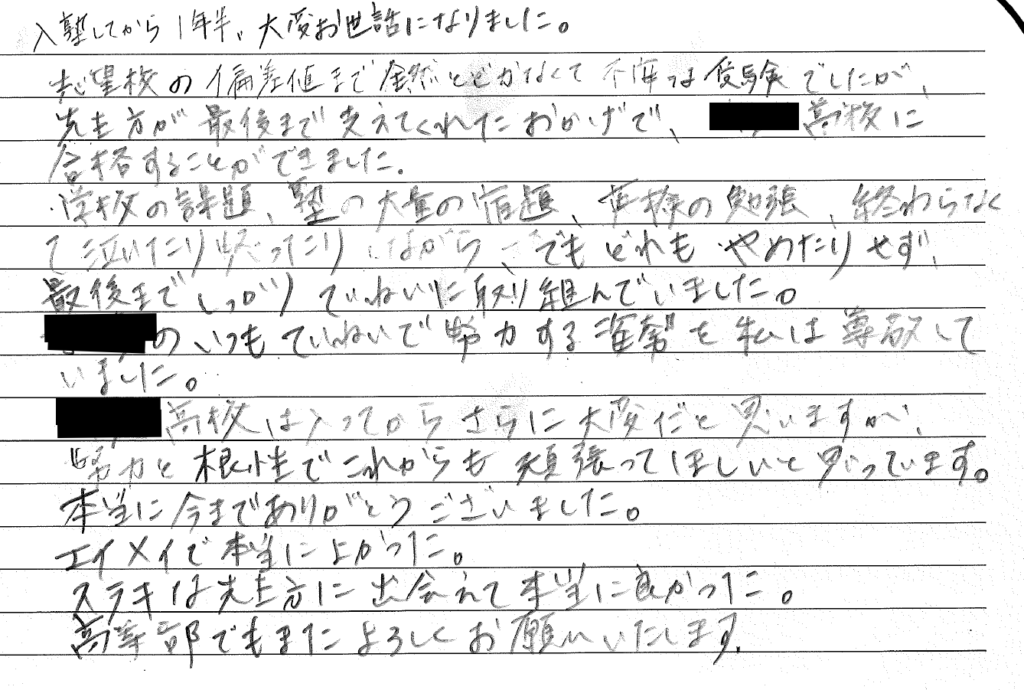 入塾してから1年半、大変お世話になりました。
志望校の偏差値まで全然とどかなくて不安な受験でしたが、
先生方が最後まで支えてくれたおかげで、高校に
合格することができました。
学校の課題、塾の大量の宿題、英検の勉張、終わらなく
て泣いたり怒ったりしながら、でもどれもやめたりせず、
最後までしっかりていねいに取り組んでいました。
のいつもていねいで努力する姿勢を私は尊敬して
いました。
高校は入ってからさらに大変だと思いますが、
努力と根性でこれからも頑張ってほしいと思っています。
本当に今までありがとうございました。
エイメイで本当によかった。
ステキな先生方に出会えて本当に良かった。
高等部でもまたよろしくお願いいたします。